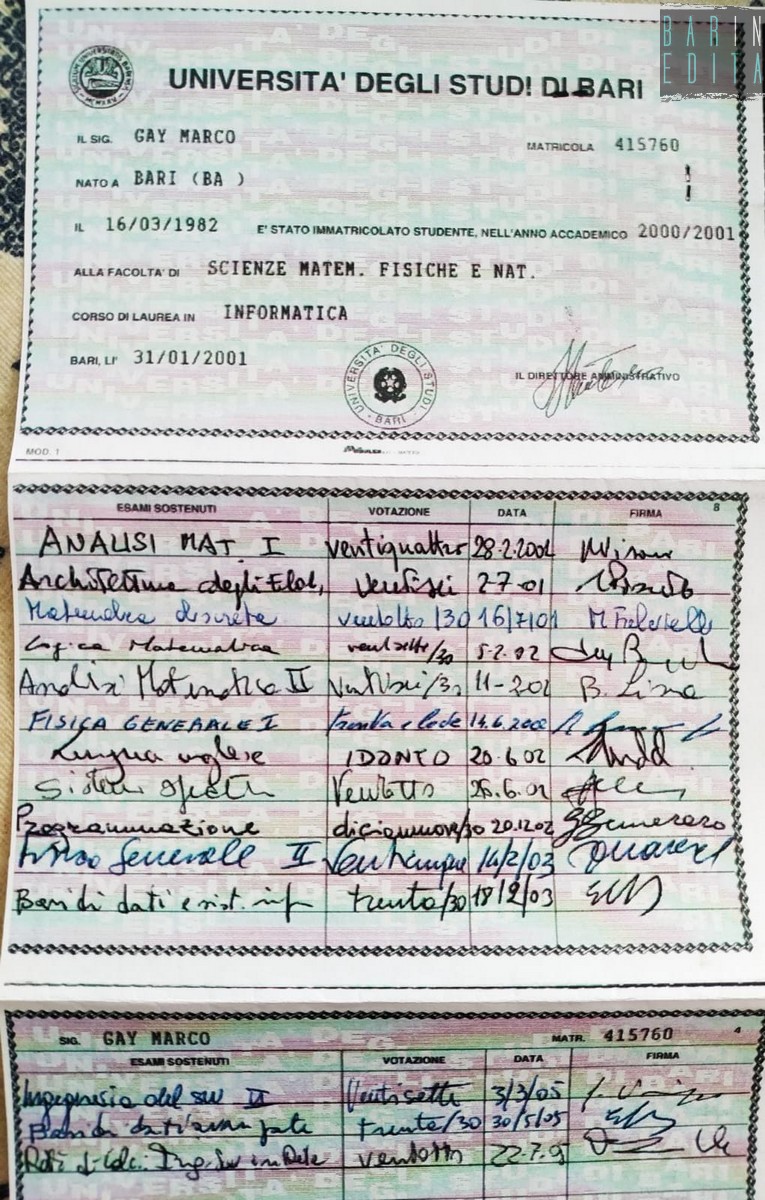 BARIN
EDITA
UNIVERSITA' DEGLI STUDI DI BARI
IL SIG. GAY MARCO
MATRICOLA 415760
NATO A BARI (BA )
IL 16/03/1982 E' STATO IMMATRICOLATO STUDENTE, NELL'ANNO ACCADEMICO 2000/2001
ALLA FACOLTA' DI SCIENZE MATEM. FISICHE E NAT.
CORSO DI LAUREA IN INFORMATICA
BARI, LI' 31/01/2001
UNIVERSITA' DEGLI STUDI BARI
IL DIRETTORE AMMINISTRATIVO
MOD. 1
8
ESAMI SOSTENUTI VOTAZIONE DATA FIRMA
ANALISI MAT. I ventiquattro 28.2.2001
Architettura degli Elab. ventisei 2-7-01
Matematica discreta ventotto/30 16/7/01
Logica Matematica ventisette/30 5.2.02
Analisi Matematica II Ventisei/30 B. Lisena
FISICA GENERALE I trenta e lode 14.6.2002
Lingua inglese IDONEO 20.6.02
Sistemi operativi Ventotto 26.6.02
Programmazione diciannove/30 20.12.02
Fisica Generale II Venticinque 14/2/03
Basi di dati e sist. inf. trenta/30 18/2/03
4
SIG. GAY MARCO MATR. 415760
ESAMI SOSTENUTI VOTAZIONE DATA FIRMA
Ingegneria del sw II Ventisette 3/3/05
Basi di dati avanzate trenta/30 30/5/05
Reti di Calc. Ing. Sw in Rete ventotto 22.7.05